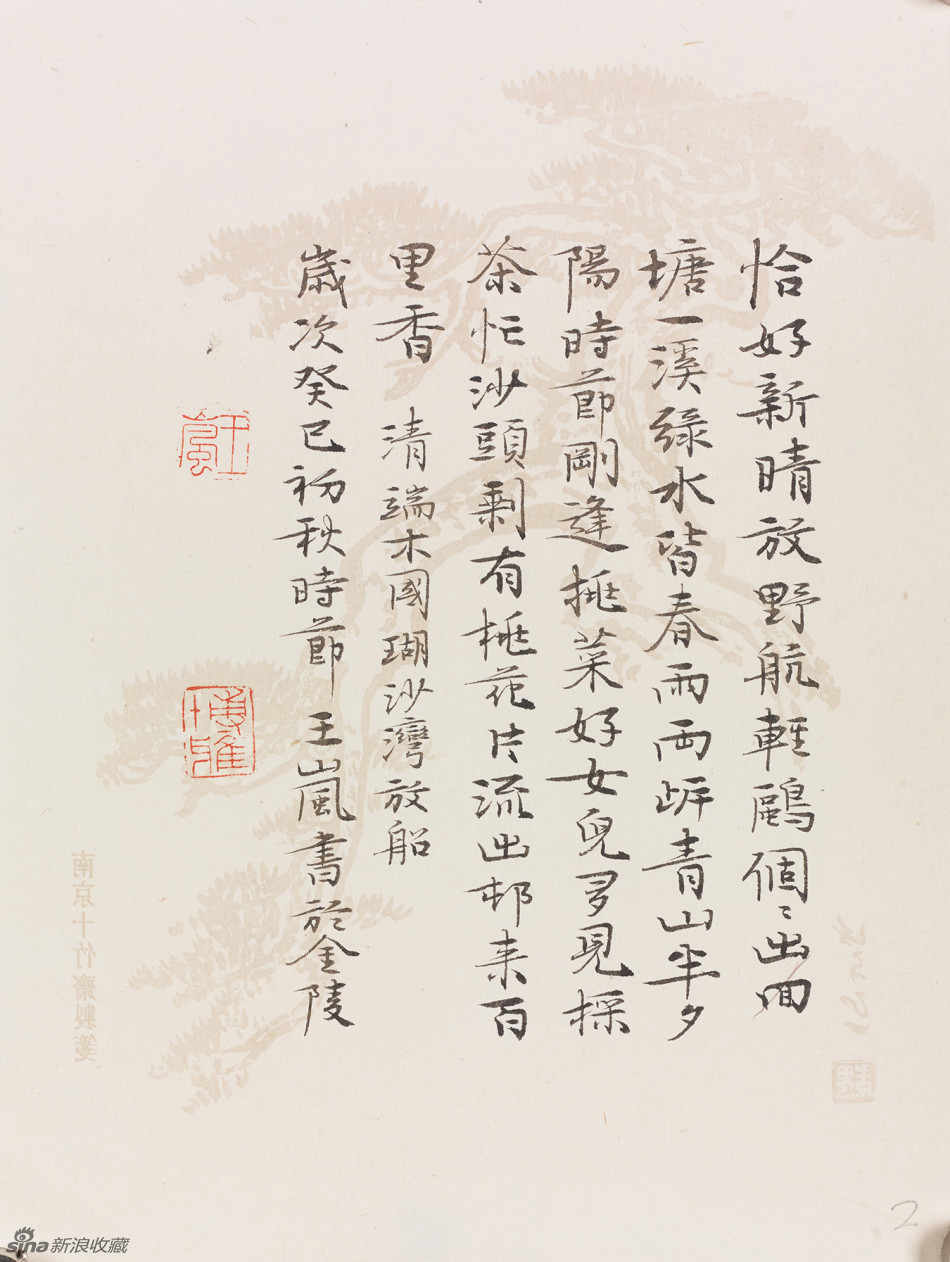 恰好新晴放野航輕鷗個〻出回
塘一溪綠水皆春雨兩岸青山半夕
陽時節剛逢挑菜好女兒多見採
茶忙沙頭剩有桃花片流出村来百
里香 清端木國瑚沙灣放船
歲次癸巳初秋時節 王嵐書於金陵
王嵐
博雅
南京十竹齋製箋
2
sina新浪收藏